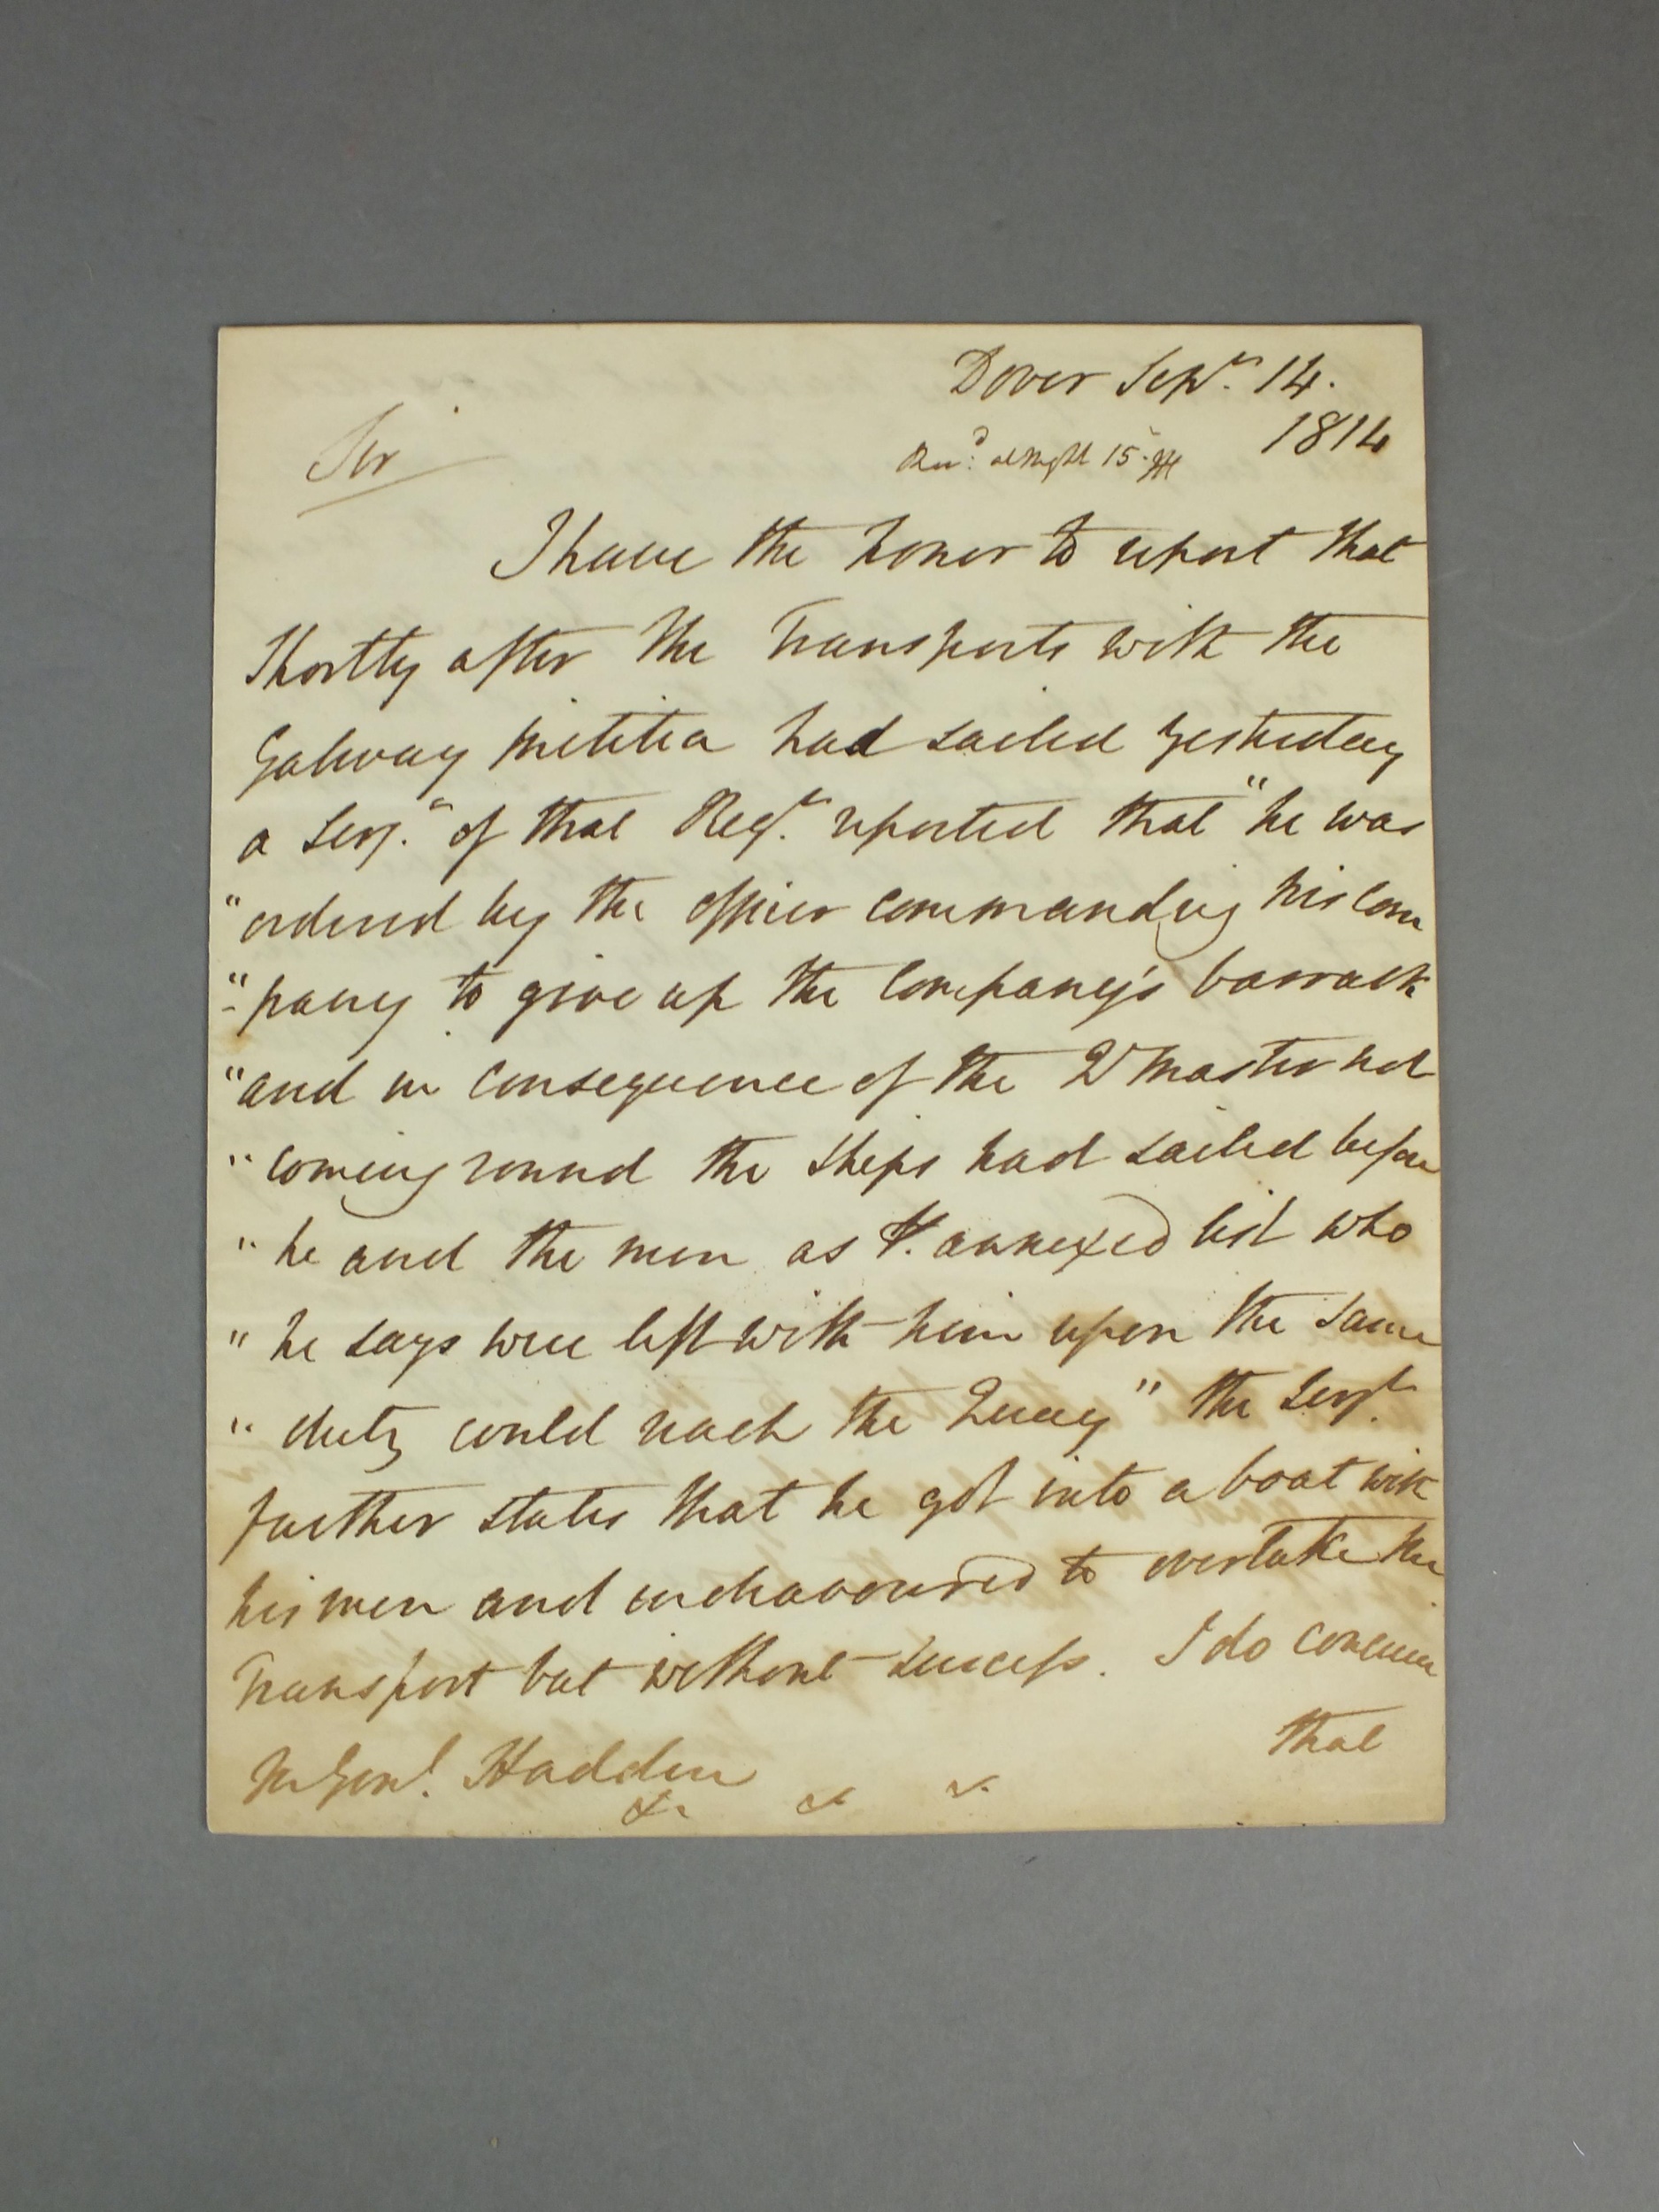 Dover Sepr. 14.
1814
Recd. at night 15.
Sir
I have the honor to report that
Shortly after the Transports with the
Galway Militia had sailed yesterday
a Serjt. of that Regt. reported that "he was
"ordered by the officer commanding his Com
"pany to give up the Company's barrack
"and in consequence of the Qr Master not
"coming round the Ships had sailed before
"he and the men as Pr. annexed list who
"he says were left with him upon the same
"duty could reach the Quay" the Serjt.
further states that he got into a boat with
his men and endeavoured to overtake the
Transport but without success. I do conceive
that
M Genl. Hadden
&c &c &c